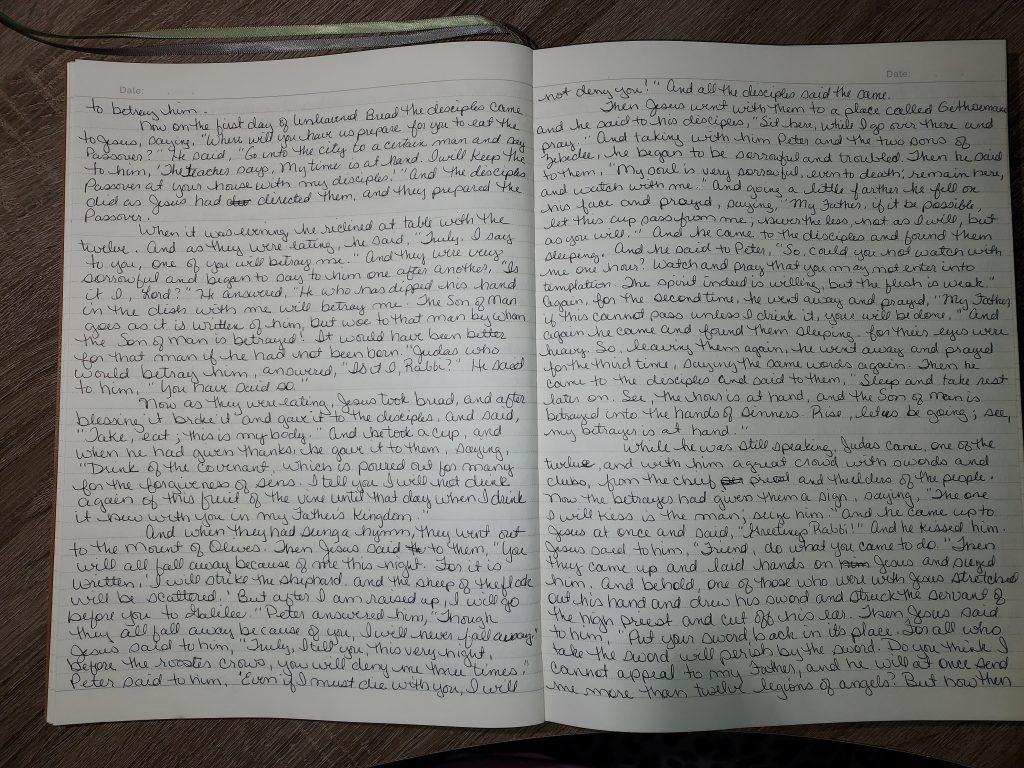 Date:
to betray him.
Now on the first day of Unleavened Bread the desciples came
to Jesus, saying, "Where will you have us prepare for you to eat the
Passover?" He said, "Go into the city to a certain man and say
to him, 'The teacher says, My time is at hand. I will keep the
Passover at your house with my disciples.'" And the desciples
did as Jesus had directed them, and they prepared the
Passover.
When it was evening, he reclined at table with the
twelve. And as they were eating, he said, "Truly, I say
to you, one of you will betray me." And they were very
sorrowful and began to say to him one after another, "Is
it I, Lord?" He answered, "He who has dipped his hand
in the dish with me will betray me. The Son of Man
goes as it is written of him, but woe to that man by whom
the Son of man is betrayed! It would have been better
for that man if he had not been born." Judas who
would betray him, answered, "Is it I, Rabbi?" He said
to him, "You have said so."
Now as they were eating, Jesus took bread, and after
blessing it broke it and gave it to the desciples, and said,
"Take, eat; this is my body." And he took a cup, and
when he had given thanks, he gave it to them, saying,
"Drink of the covenant, which is poured out for many
for the forgiveness of sens. I tell you I will not drink
again of this fruit of the vine until that day when I drink
it new with you in my Father's Kingdom."
And when they had sung a hymn, they went out
to the Mount of Olives. Then Jesus said to them, "You
will all fall away because of me this night. For it is
written, 'I will strike the shephard, and the sheep of the flock
will be scattered.' But after I am raised up, I will go
before you to Galilee." Peter answered him, "Though
they all fall away because of you, I will never fall away."
Jesus said to him, "Truly, I tell you this very night,
before the rooster crows, you will deny me three times."
Peter said to him, "Even if I must die with you, I will
Date:
not deny you!" And all the desciples said the same.
Then Jesus went with them to a place called Gethsemane
and he said to his disciples, "Sit here, while I go over there and
pray." And taking with him Peter and the two sons of
Zebedee, he began to be sorrowful and troubled. Then he said
to them, "My soul is very sorrowful, even to death; remain here,
and watch with me." And going a little farther he fell on
his face and prayed, saying, "My Father, if it be possible,
let this cup pass from me; neverthe less, not as I will, but
as you will." And he came to the disciples and found them
sleeping. And he said to Peter, "So, could you not watch with
me one hour? Watch and pray that you may not enter into
temptation. The spirit indeed is willing, but the flesh is weak."
Again, for the second time, he went away and prayed, "My Father
if this cannot pass unless I drink it, your will be done." And
again he came and found them sleeping, for their eyes were
heavy. So, leaving them again, he went away and prayed
for the third time, saying the same words again. Then he
came to the desciples and said to them, "Sleep and take rest
later on. See, the hour is at hand, and the Son of man is
betrayed into the hands of sinners. Rise, let us be going; see,
my betrayer is at hand."
While he was still speaking, Judas came, one of the
twelve, and with him a great crowd with swords and
clubs, from the chief priest and the elders of the people.
Now the betrayer had given them a sign, saying, "The one
I will kiss is the man; seize him." And he came up to
Jesus at once and said, "Greeting Rabbi!" And he kissed him.
Jesus said to him, "Friend, do what you came to do." Then
they came up and laid hands on Jesus and siezed
him. And behold, one of those who were with Jesus stretched
out his hand and drew his sword and struck the servant of
the high priest and cut off his ear. Then Jesus said
to him, "Put your sword back in its place. For all who
take the sword will perish by the sword. Do you think I
cannot appeal to my Father, and he will at once send
me more than twelve legions of angels? But how then